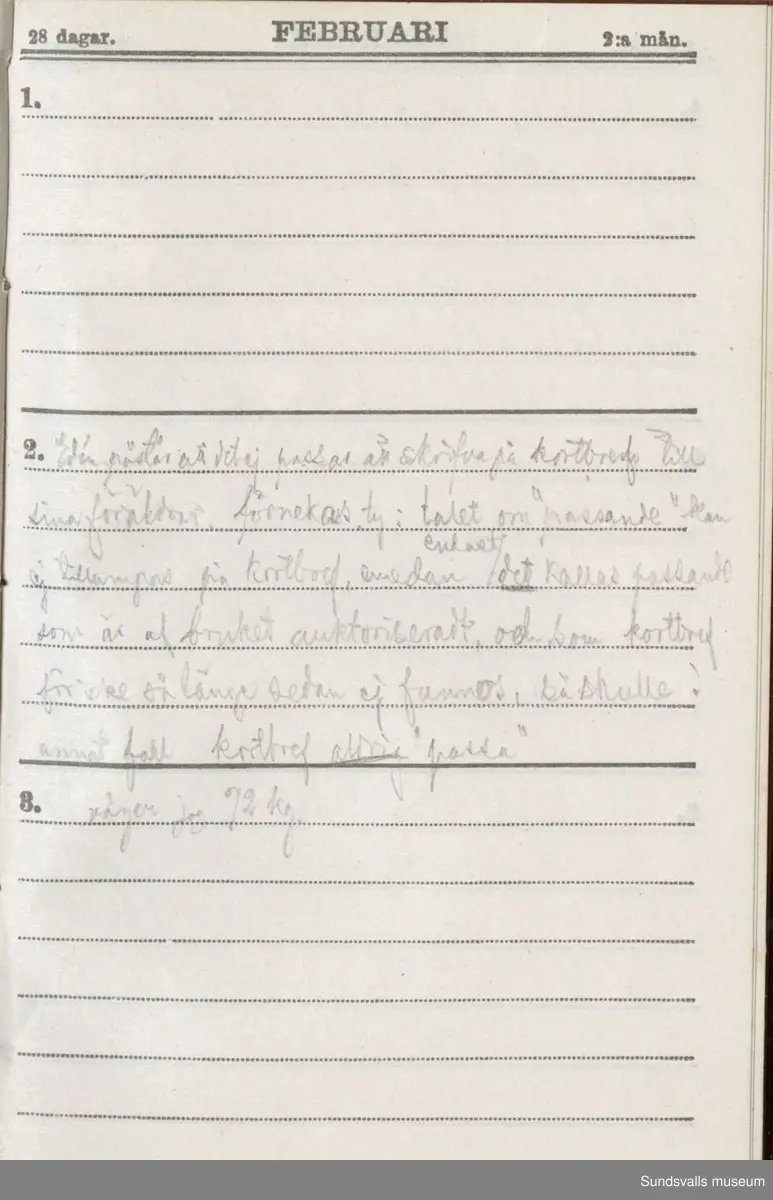 28 dagar. FEBRUARI 2:a mån.
1.
2. påstår att det ej passar att skrifva på kortbref till
sina föräldrar. Förnekas, ty: talet om "passande" kan
endast
ej tillämpas på kortbref, medan det kallas passande
som är af bruket auktoriseradt, och som kortbref
för icke så länge sedan ej funnos, så skulle i
annat fall kortbref aldrig "passa"
3. väger jag 72 kg.
Sundsvalls museum